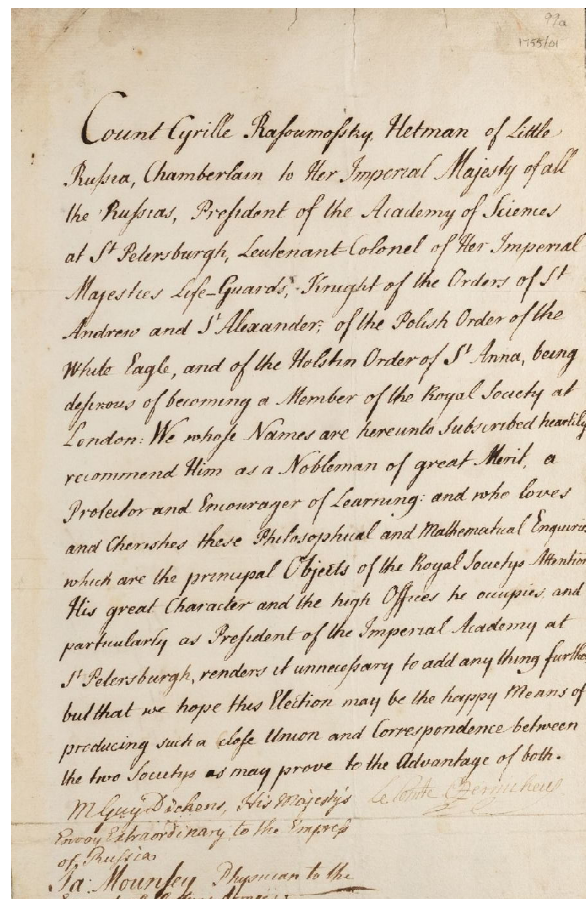 99a
1755/01
Count Cyrille Rasoumofsky, Hetman of Little
Russia, Chamberlain to Her Imperial Majesty of all
the Russias, President of the Academy of Sciences
at St Petersburgh, Leutenant-Colonel of Her Imperial
Majesties Life-Guards, Knight of the Orders of St
Andrew and St Alexander; of the Polish Order of the
White Eagle, and of the Holstin Order of St Anna, being
desirous of becoming a Member of the Royal Society at
London: We whose Names are hereunto Subscribed heartily
recommend Him as a Nobleman of great Merit, a
Protector and Encourager of Learning: and who loves
and Cherishes these Philosophical and Mathematical Enquiries
which are the principal Objects of the Royal Societys Attention
His great Character and the high Offices he occupies, and
particularly as President of the Imperial Academy at
St Petersburgh, renders it unnecessary to add any thing further
but that we hope this Election may be the happy Means of
producing such a close Union and Correspondence between
the two Societys as may prove to the Advantage of both.
M Guy Dickens, His Majesty's le Comte Czernichew
Envoy Extraordinary to the Empress
of Russia
Ja: Mounsey Physician to the